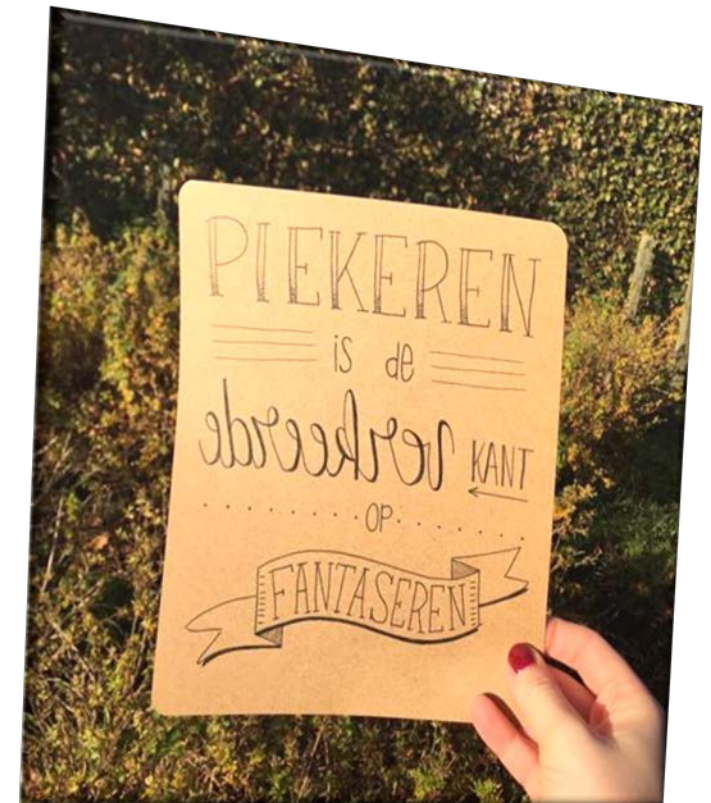 PIEKEREN
is de
verkeerde KANT
OP
FANTASEREN